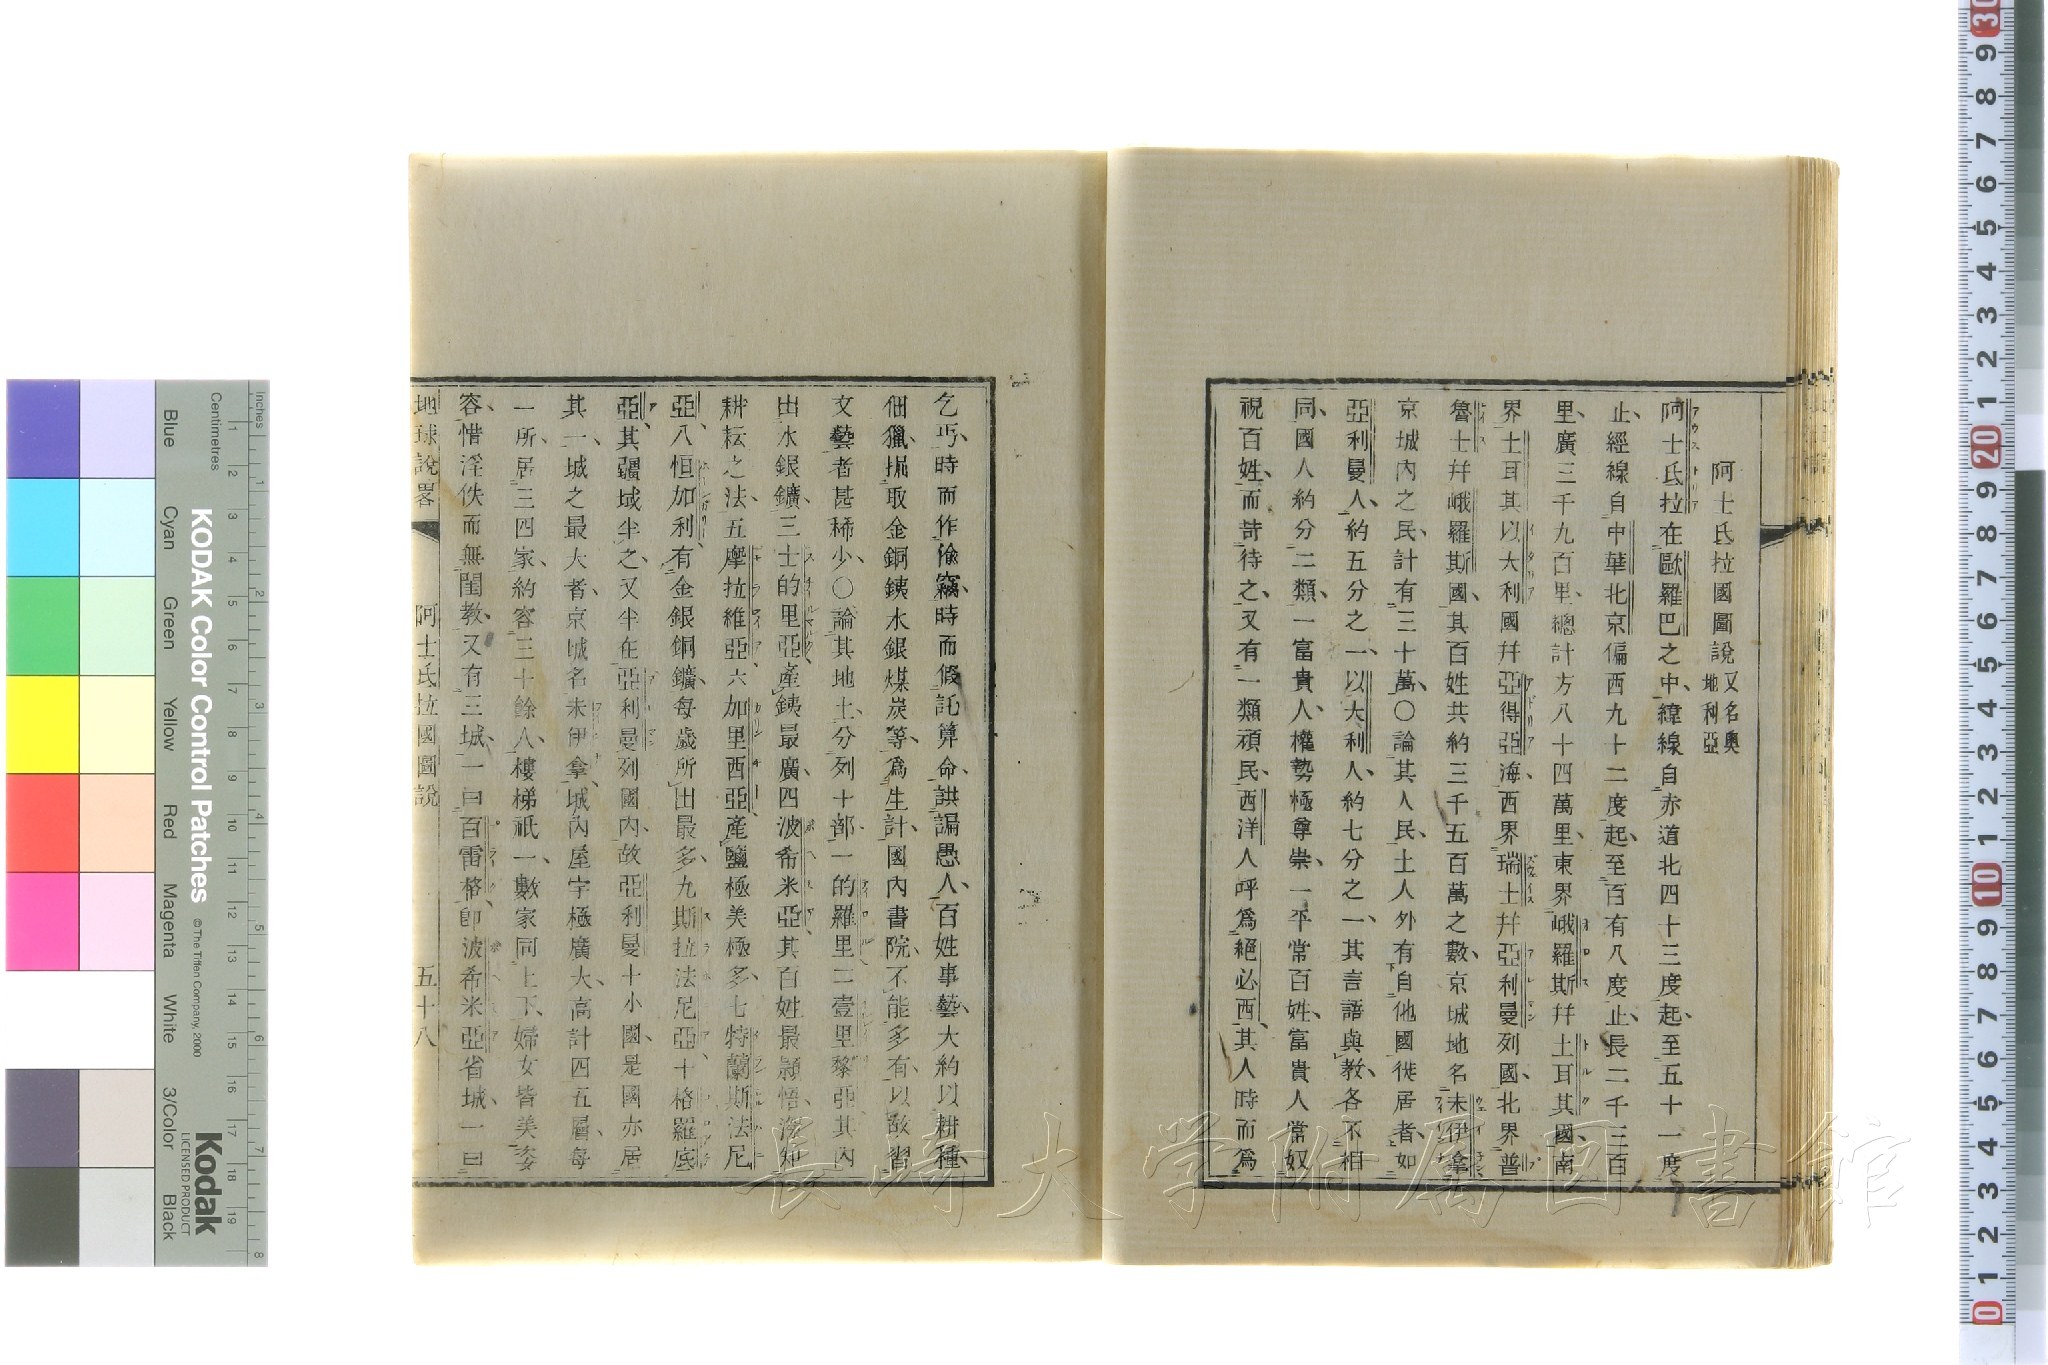 阿士氏拉國圖說又名奧地利亞
阿士氏拉在歐羅巴之中緯線自赤道北四十三度起至五十一度
止經線自中華北京偏西九十二度起至百有八度止長二千三百
里廣三千九百里總計方八十四萬里東界峨羅斯幷土耳其國南
界土耳其以大利國幷亞得亞海西界瑞士幷亞利曼列國北界普
魯士幷峨羅斯國其百姓共約三千五百萬之數京城地名未伊拿
京城內之民計有三十萬〇論其人民土人外有自他國徙居者如
亞利曼人約五分之一以大利人約七分之一其言語與教各不相
同國人約分二類一富貴人權勢極尊崇一平常百姓富貴人常奴
視百姓而苛待之又有一類頑民西洋人呼爲絕必西其人時而爲
乞丐時而作偸竊時而假託算命誆騙愚人百姓事藝大約以耕種
佃獵掘取金銅銕水銀煤炭等爲生計國內書院不能多有以故習
文藝者甚稀少〇論其地土分列十部一的羅里二壹里黎亞其內
出水銀鑛三士的里亞產銕最廣四波希米亞其百姓最穎悟
耕耘之法五摩拉維亞六加里西亞產鹽極美極多七特蘭斯法尼
亞八恒加利有金銀銅鑛每歲所出最多九斯拉法尼亞十格羅底
亞其疆域半之又半在亞利曼列國內故亞利曼十小國是國亦居
其一城之最大者京城名未伊拿城內屋宇極廣大高計四五層每
一所居三四家約容三十餘人樓梯祇一數家同上下婦女皆美姿
容惜淫佚而無閨教又有三城一曰百雷格卽波希米亞省城一曰
地球說畧 阿士氏拉國圖說 五十八
長崎大学附属図書館
KODAK Color Control Patches © The Tiffen Company, 2000
Kodak LICENSED PRODUCT
Inches 1 2 3 4 5 6 7 8
Centimetres 1 2 3 4 5 6 7 8 9 10 11 12 13 14 15 16 17 18 19
Blue Cyan Green Yellow Red Magenta White 3/Color Black
0 1 2 3 4 5 6 7 8 9 10 1 2 3 4 5 6 7 8 9 20 1 2 3 4 5 6 7 8 9 30